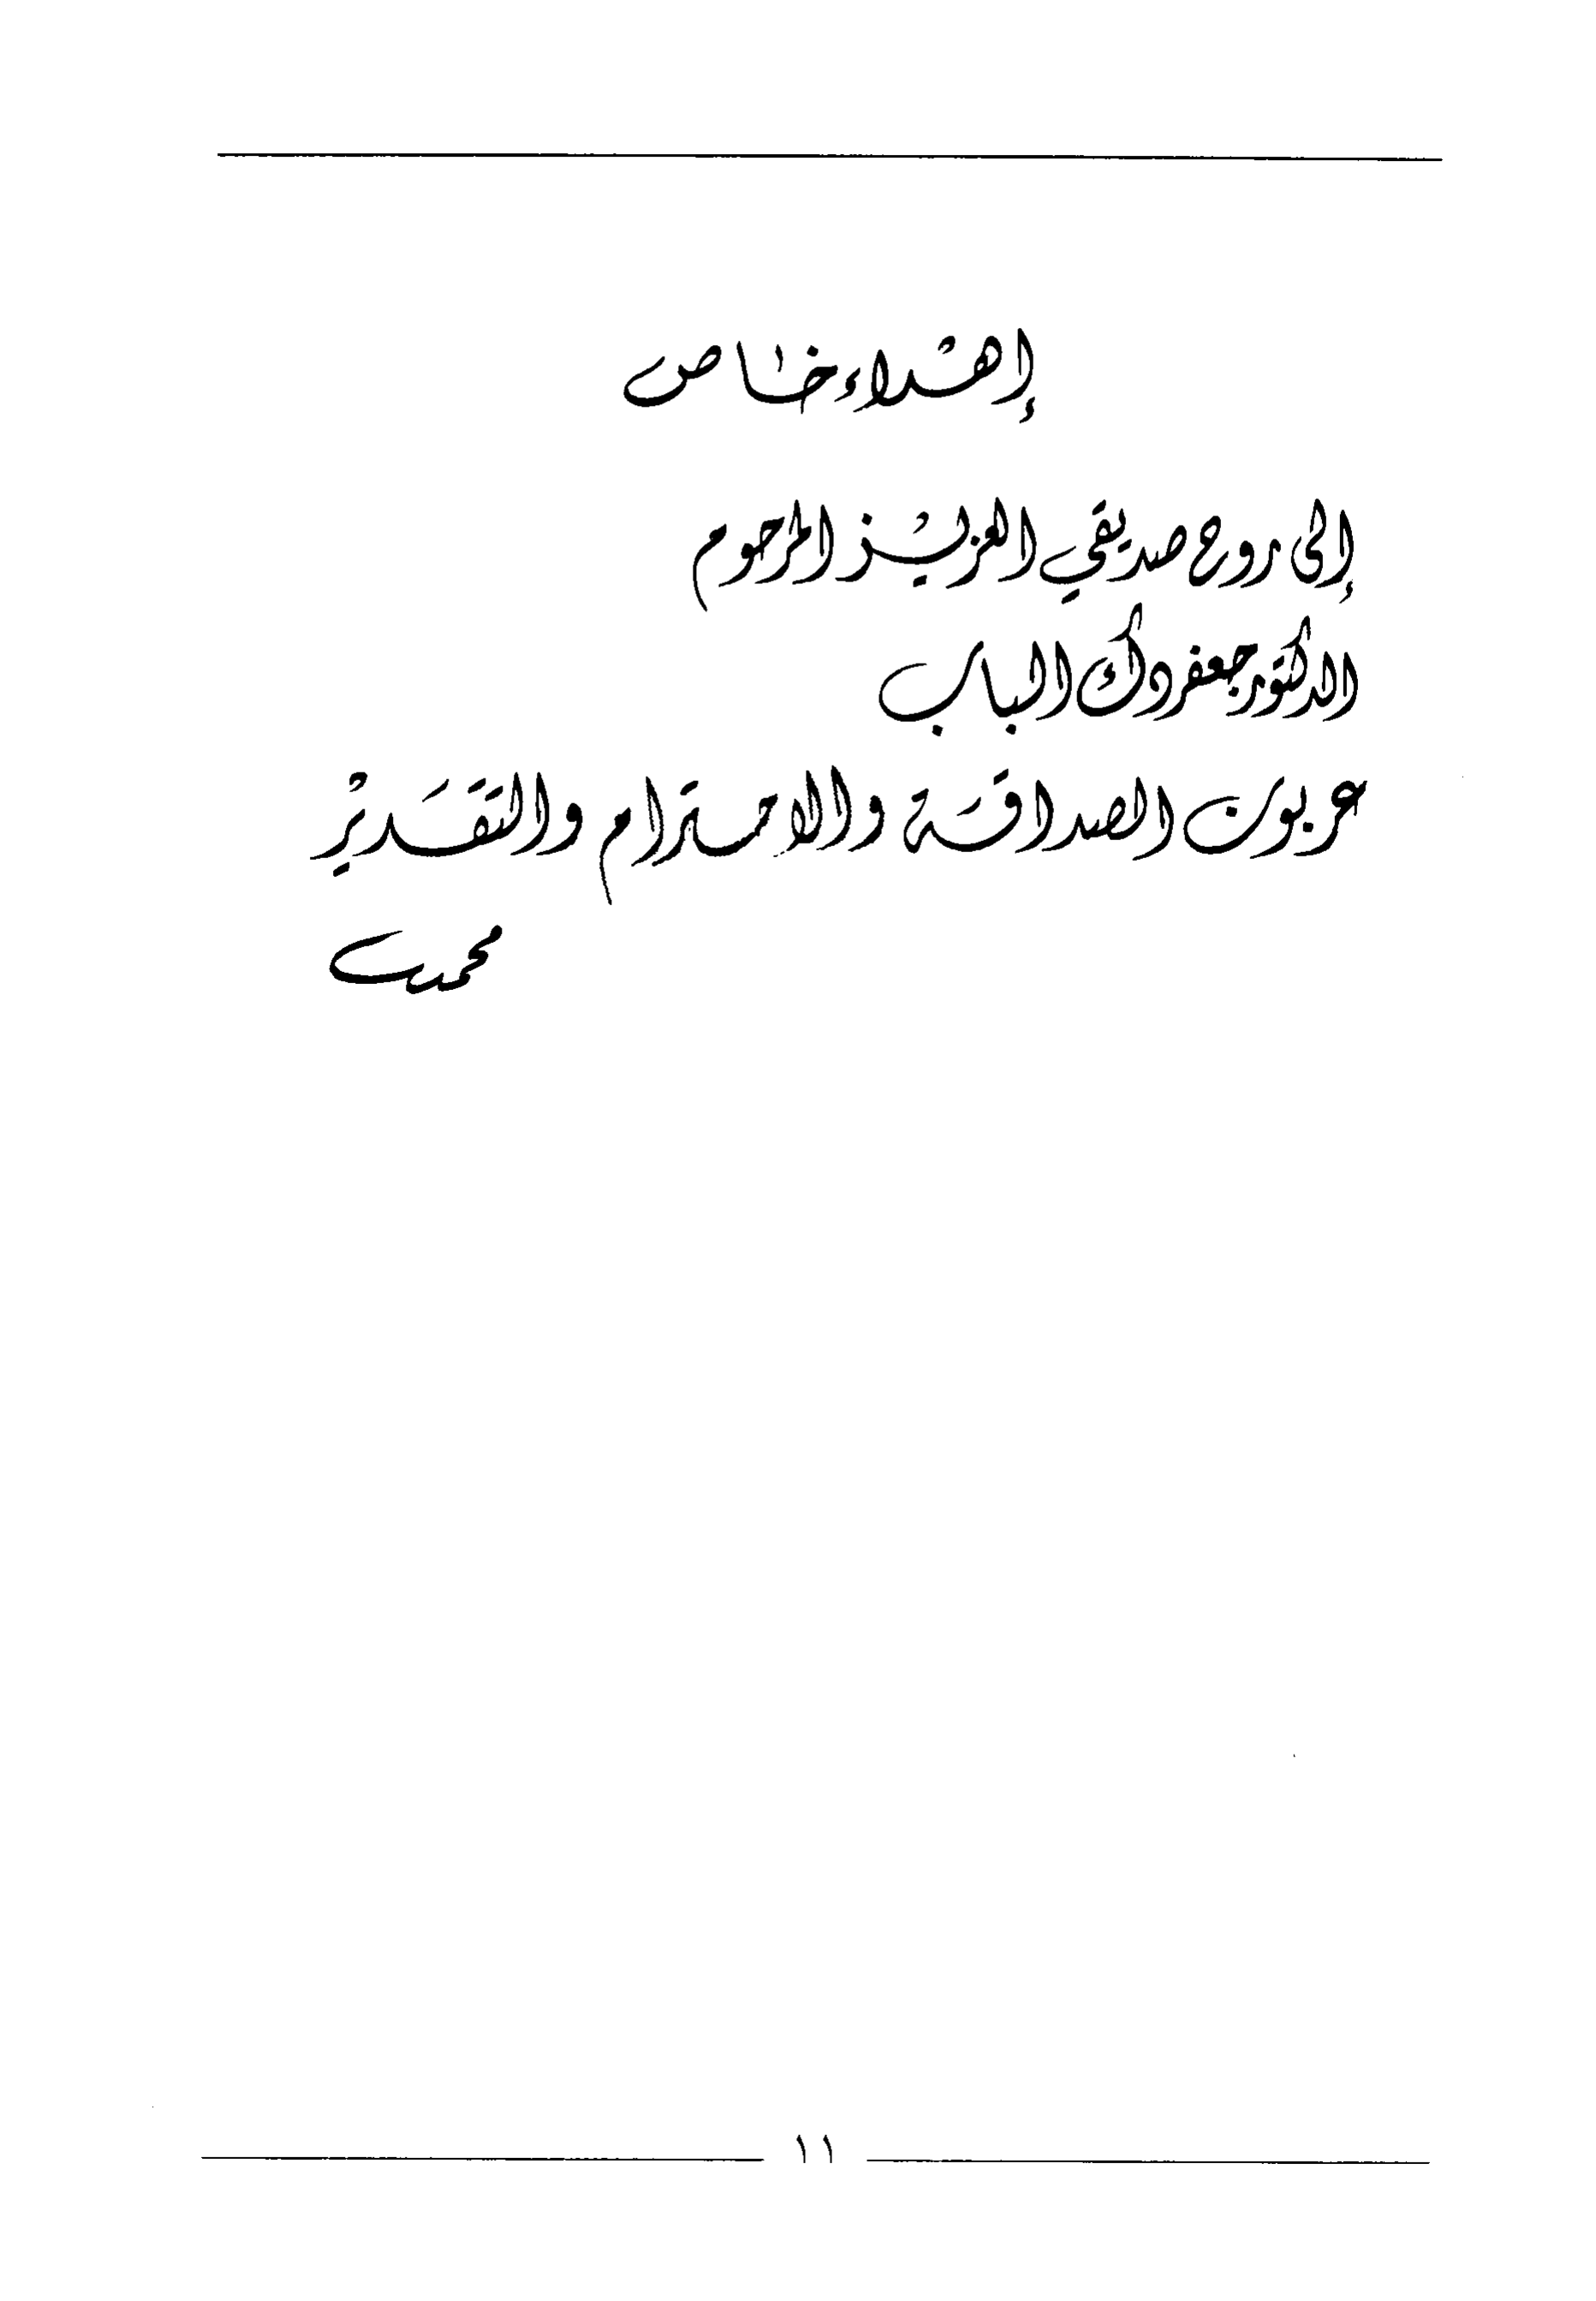 إهداء خاص
إلى روح صديقي العزيز المرحوم
الدكتور جعفر دك الباب
عربون الصداقة والاحترام والتقدير
محمد
١١